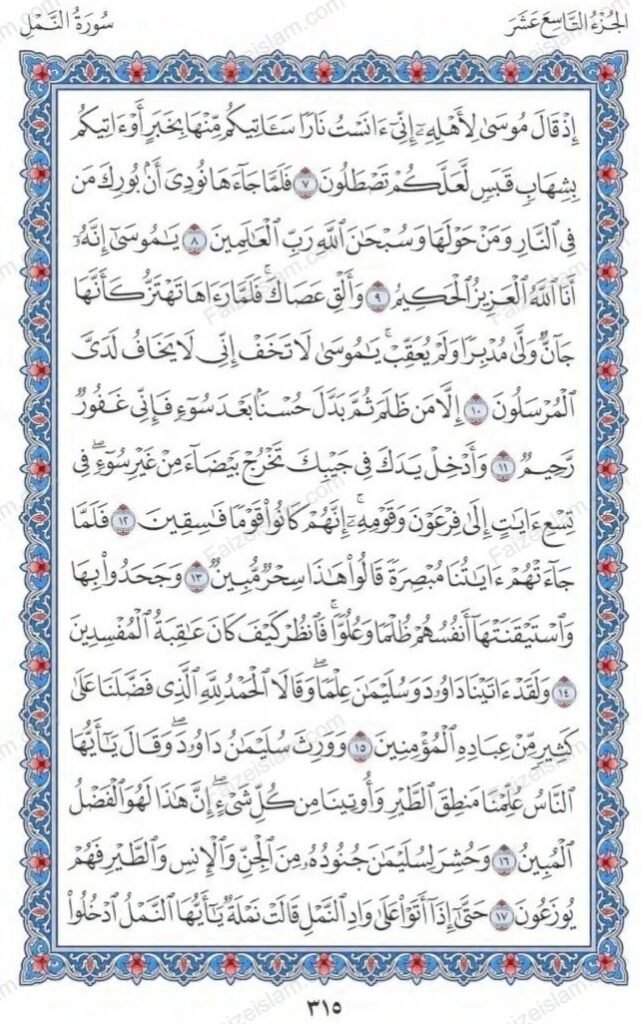 الجُزْءُ التَّاسِعَ عَشَرَ
سُورَةُ النَّمْلِ
إِذْ قَالَ مُوسَىٰ لِأَهْلِهِۦٓ إِنِّىٓ ءَانَسْتُ نَارًا سَـَٔاتِيكُم مِّنْهَا بِخَبَرٍ أَوْ ءَاتِيكُم
بِشِهَابٍ قَبَسٍ لَّعَلَّكُمْ تَصْطَلُونَ ٧ فَلَمَّا جَآءَهَا نُودِىَ أَنۢ بُورِكَ مَن
فِى النَّارِ وَمَنْ حَوْلَهَا وَسُبْحَٰنَ اللَّهِ رَبِّ الْعَٰلَمِينَ ٨ يَٰمُوسَىٰٓ إِنَّهُۥٓ
أَنَا اللَّهُ الْعَزِيزُ الْحَكِيمُ ٩ وَأَلْقِ عَصَاكَ ۚ فَلَمَّا رَءَاهَا تَهْتَزُّ كَأَنَّهَا
جَآنٌّ وَلَّىٰ مُدْبِرًا وَلَمْ يُعَقِّبْ ۚ يَٰمُوسَىٰ لَا تَخَفْ إِنِّى لَا يَخَافُ لَدَىَّ
الْمُرْسَلُونَ ١٠ إِلَّا مَن ظَلَمَ ثُمَّ بَدَّلَ حُسْنًۢا بَعْدَ سُوٓءٍ فَإِنِّى غَفُورٌ
رَّحِيمٌ ١١ وَأَدْخِلْ يَدَكَ فِى جَيْبِكَ تَخْرُجْ بَيْضَآءَ مِنْ غَيْرِ سُوٓءٍ ۖ فِى
تِسْعِ ءَايَٰتٍ إِلَىٰ فِرْعَوْنَ وَقَوْمِهِۦٓ ۚ إِنَّهُمْ كَانُوا۟ قَوْمًا فَٰسِقِينَ ١٢ فَلَمَّا
جَآءَتْهُمْ ءَايَٰتُنَا مُبْصِرَةً قَالُوا۟ هَٰذَا سِحْرٌ مُّبِينٌ ١٣ وَجَحَدُوا۟ بِهَا
وَاسْتَيْقَنَتْهَآ أَنفُسُهُمْ ظُلْمًا وَعُلُوًّا ۚ فَانظُرْ كَيْفَ كَانَ عَٰقِبَةُ الْمُفْسِدِينَ
١٤ وَلَقَدْ ءَاتَيْنَا دَاوُۥدَ وَسُلَيْمَٰنَ عِلْمًا ۖ وَقَالَا الْحَمْدُ لِلَّهِ الَّذِى فَضَّلَنَا عَلَىٰ
كَثِيرٍ مِّنْ عِبَادِهِ الْمُؤْمِنِينَ ١٥ وَوَرِثَ سُلَيْمَٰنُ دَاوُۥدَ ۖ وَقَالَ يَٰٓأَيُّهَا
النَّاسُ عُلِّمْنَا مَنطِقَ الطَّيْرِ وَأُوتِينَا مِن كُلِّ شَىْءٍ ۖ إِنَّ هَٰذَا لَهُوَ الْفَضْلُ
الْمُبِينُ ١٦ وَحُشِرَ لِسُلَيْمَٰنَ جُنُودُهُۥ مِنَ الْجِنِّ وَالْإِنسِ وَالطَّيْرِ فَهُمْ
يُوزَعُونَ ١٧ حَتَّىٰٓ إِذَآ أَتَوْا۟ عَلَىٰ وَادِ النَّمْلِ قَالَتْ نَمْلَةٌ يَٰٓأَيُّهَا النَّمْلُ ادْخُلُوا۟
٣١٥
Faizeislam.com